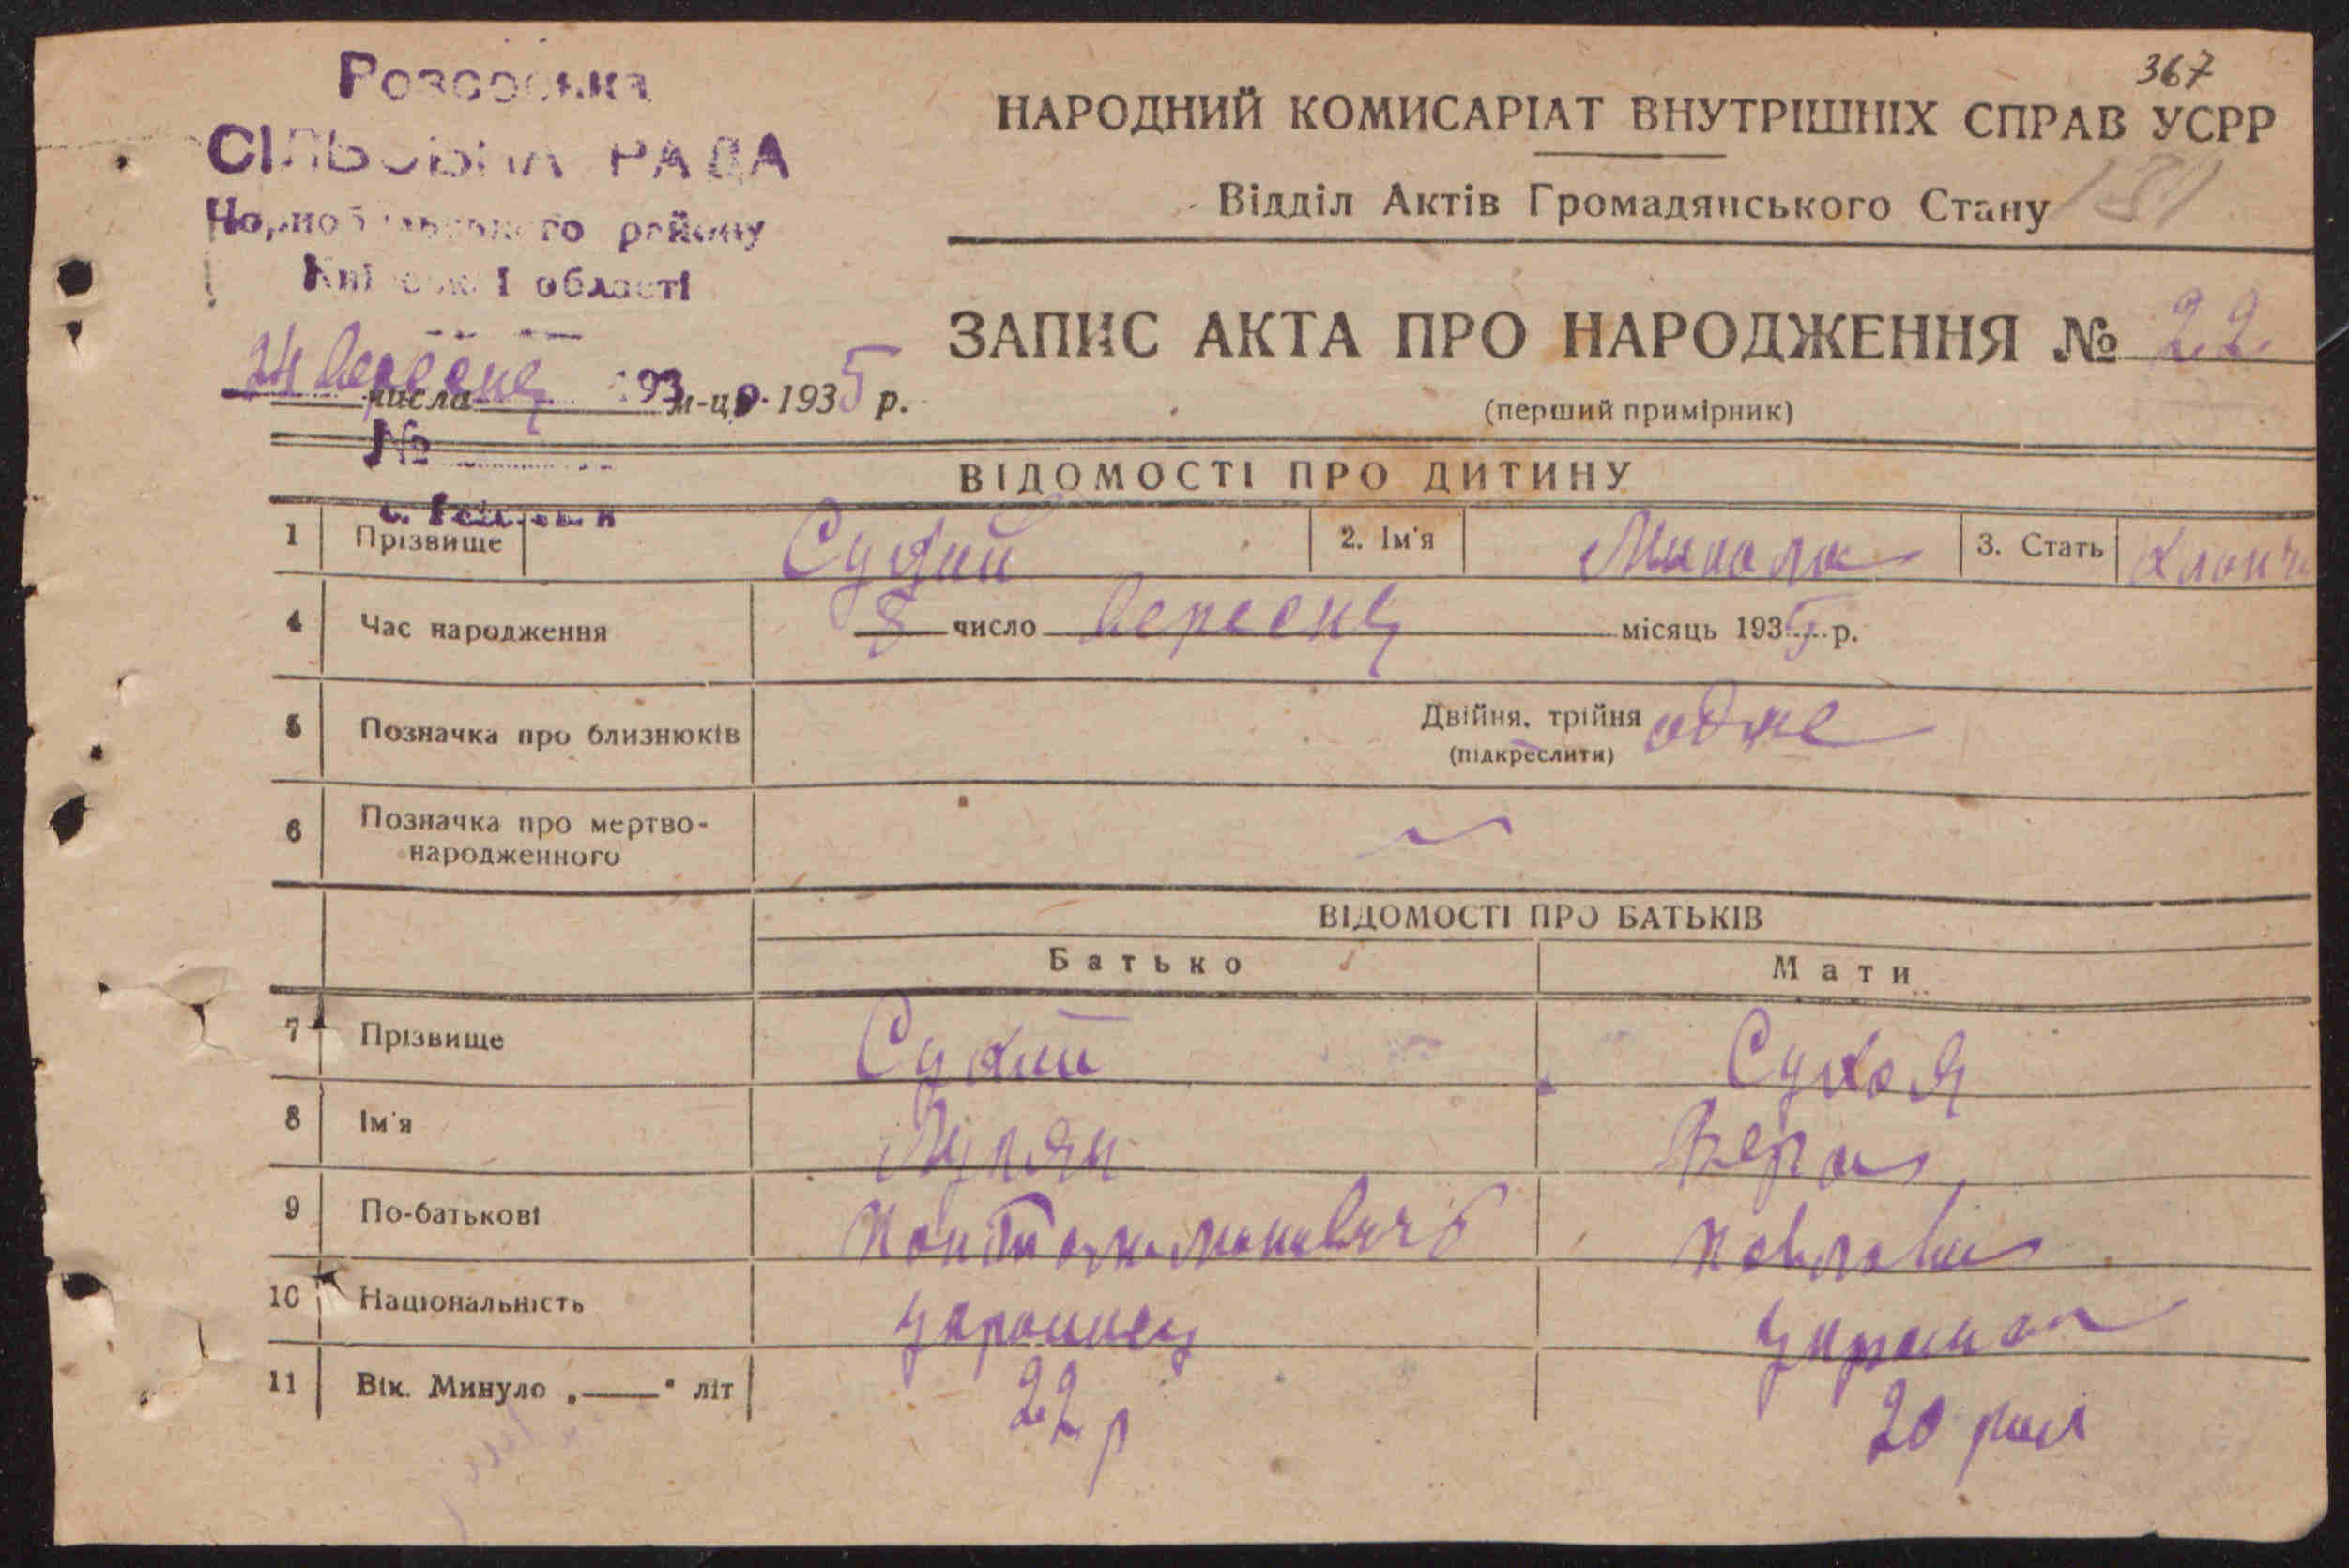 367
Розсоська
СІЛЬСЬКА РАДА
Чорнобильського району
Київської області
НАРОДНИЙ КОМИСАРІАТ ВНУТРІШНІХ СПРАВ УСРР
Відділ Актів Громадянського Стану
ЗАПИС АКТА ПРО НАРОДЖЕННЯ № 22
(перший примірник)
24 вересня 193
числа м-ця 1935 р.
№
ВІДОМОСТІ ПРО ДИТИНУ
1 Прізвище Сухий 2. Ім'я Микола 3. Стать хлопч
4 Час народження 8 число вересня місяць 1935 р.
5 Позначка про близнюків Двійня, трійня одне
(підкреслити)
6 Позначка про мертво-
народженного
ВІДОМОСТІ ПРО БАТЬКІВ
Батько Мати
7 Прізвище Сухий Сухая
8 Ім'я Лукян Вера
9 По-батькові Павловна
10 Національність украинец украинка
11 Вік. Минуло „——" літ 22 р 20 рокі